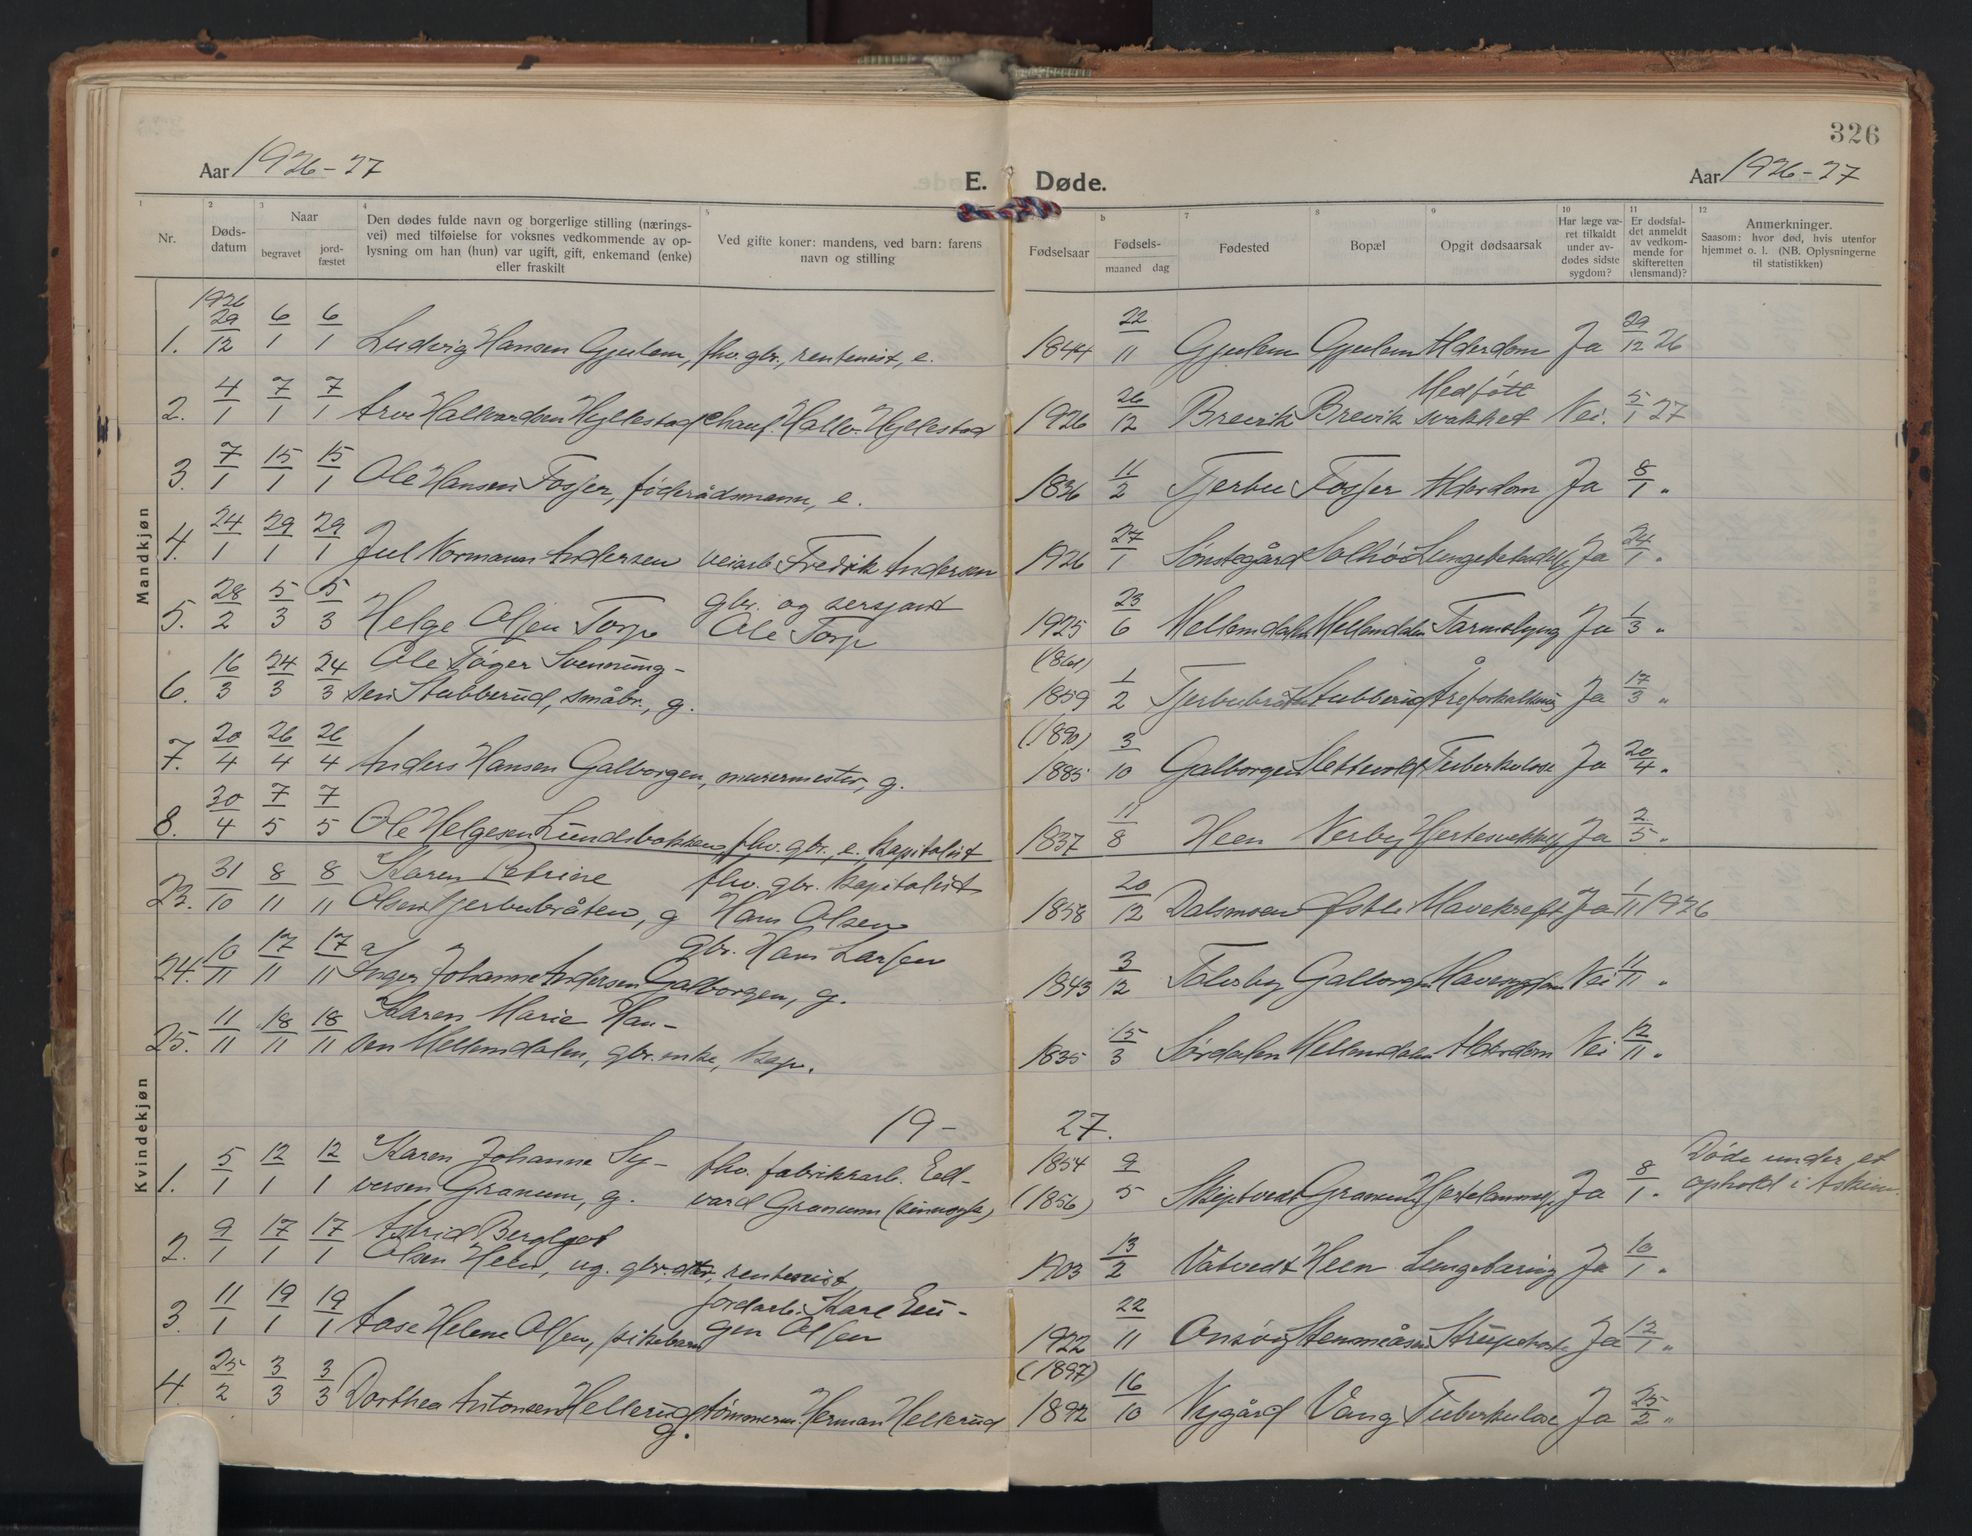 326
Aar 1926-27 E. Døde. Aar 1926-27
1 2 3 4 5 b 7 8 9 10 11 12
Nr. Døds-datum Naar begravet jord-fæstet Den dødes fulde navn og borgerlige stilling (nærings-vei) med tilføielse for voksnes vedkommende av op-lysning om han (hun) var ugift, gift, enkemand (enke) eller fraskilt Ved gifte koner: mandens, ved barn: farens navn og stilling Fødselsaar Fødsels- maaned dag Fødested Bopæl Opgit dødsaarsak Har læge væ-ret tilkaldt under av-dødes sidste sygdom? Er dødsfal-det anmeldt av vedkom-mende for skifteretten (lensmand)? Anmerkninger. Saasom: hvor død, hvis utenfor hjemmet o. l. (NB. Oplysningerne til statistikken)
Mandkjøn
1926
1. 29/12 6/1 6/1 Ludvig Hansen Gjulem, fhv. gbr., rentenist, e. 1844 22/11 Gjulem Gjulem Alderdom Ja 29/12 26
2. 4/1 7/1 7/1 Arve Halvardsen Hyllestad chauf. Hallv. Hyllestad 1926 26/12 Brevik Brevik Medfött svakhet Nei. 5/1 27
3. 7/1 15/1 15/1 Ole Hansen Fosser, føderådsmann, e. 1836 11/2 Tjerbu Fosser Alderdom Ja 8/1 "
4. 24/1 29/1 29/1 Jul Normann Andersen veiarb. Fredrik Andersen 1926 27/1 Sønstegård Solhöi Ja 24/1 "
5. 28/2 5/3 5/3 Helge Olsen Torp gbr. og sersjant Ole Torp 1925 23/6 Hellemdalen Hellemdalen Tarmslyng Ja 1/3 "
6. 16/3 24/3 24/3 Ole Töger Svennung-
sen Stubberud, småbr., g. (1861) 1859 1/2 Tjerbubråten Stubberud Åreforkalkning Ja 17/3 "
7. 20/4 26/4 26/4 Anders Hansen Galborgen, murermester, g. (1890) 1885 3/10 Galborgen Slettvold Tuberkulose Ja 20/4 "
8. 30/4 7/5 7/5 Ole Helgesen Lundsbakken, fhv. gbr., e. kapitalist 1837 11/8 Heen Nerby Ja 2/5 "
Kvindekjøn
23. 31/10 8/11 8/11 Karen Petrine fhv. gbr. kapitalist
Olsen Tjerbubråten, g Hans Olsen 1858 20/12 Dalsmoen Østli Mavekreft Ja 1/11 1926
24. 10/11 17/11 17/11 gbr. Hans Larsen
Inger Johanne Andersen Galborgen, g. 1843 3/12 Tolersby Galborgen Mavesygdom Nei 11/11 "
25. 11/11 18/11 18/11 Karen Marie Han-
sen Hellemdalen, gbr. enke, kap. 1835 15/3 Sördalen Hellemdalen Alderdom Nei 12/11 "
19- 27.
1. 5/1 12/1 12/1 Karen Johanne Sy- fhv. fabrikkarb. Ed-
versen Granum, g. vard Granum 1854 (1856) 9/5 Skiptvedt Granum Ja 8/1 " Døde under et
ophold i Askim.
2. 9/1 17/1 17/1 Astrid Bergljot
Olsen Heen, ug. gbr.dtr, rentenist 1903 13/2 Våtvedt Heen Ja 10/1 "
3. 11/1 19/1 19/1 Aase Helene Olsen, pikebarn jordarb. Karl Eu-
gen Olsen 1922 22/11 Onsøy Strupehoste Ja 12/1 "
4. 25/2 3/3 3/3 Dorthea Antonsen Hellerud g. tømmerm. Herman Hellerud (1897) 1892 16/10 Nygård Vang Tuberkulose Ja 25/2 "